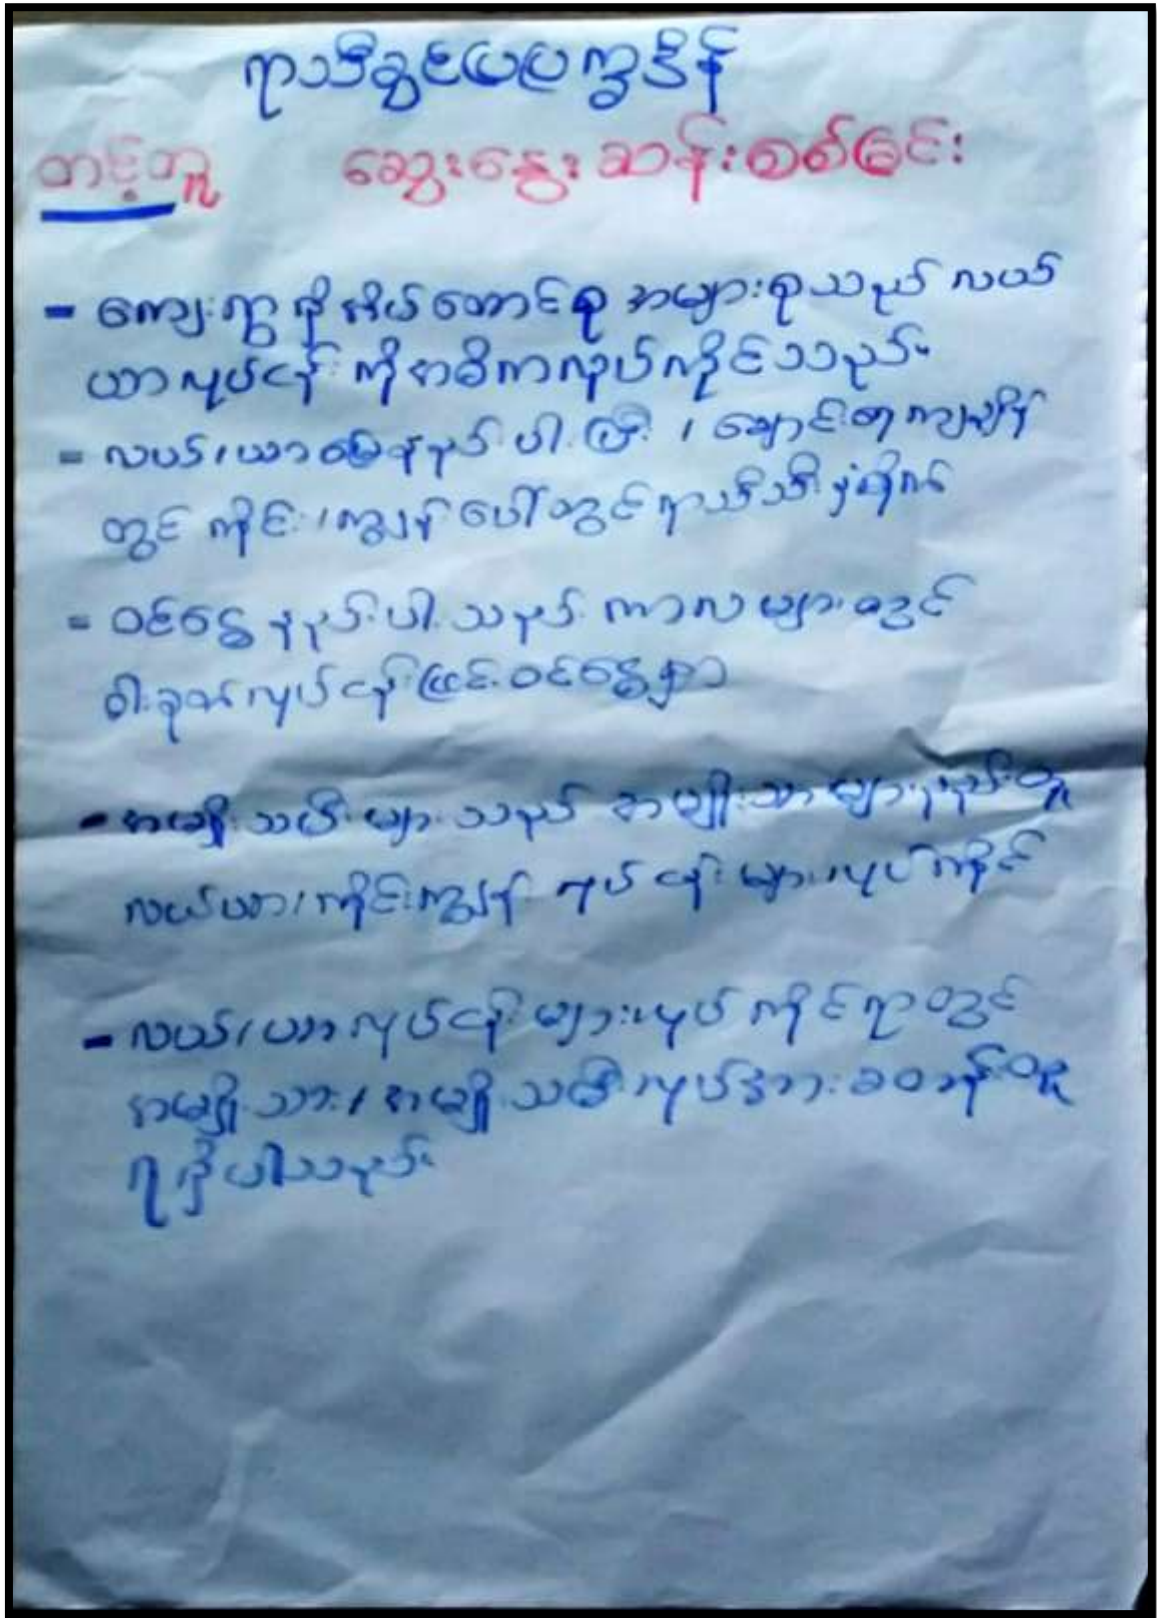 ရာသီခွင်ပြပြက္ခဒိန်
တင့်ကူ ဆွေးနွေးဆန်းစစ်ခြင်း
- ကျေးရွာရှိအိမ်ထောင်စု အများစုသည် လယ်
ယာလုပ်ငန်းကိုအဓိကလုပ်ကိုင်သည်။
- လယ်/ယာမြေနည်းပါးပြီး / ချောင်းရေကျချိန်
တွင် ကိုင်း/ကျွန်းပေါ်တွင်ရာသီသီးနှံစိုက်
- ဝင်ငွေနည်းပါးသည့်ကာလများတွင်
ဝါးခုတ်လုပ်ငန်းဖြင့်ဝင်ငွေရှာ
- အမျိုးသမီးများသည် အမျိုးသားများနည်းတူ
လယ်ယာ/ကိုင်းကျွန်း လုပ်ငန်းများလုပ်ကိုင်
- လယ်/ယာလုပ်ငန်းများလုပ်ကိုင်ရာတွင်
အမျိုးသား/အမျိုးသမီးလုပ်အားခတန်းတူ
ရရှိပါသည်။